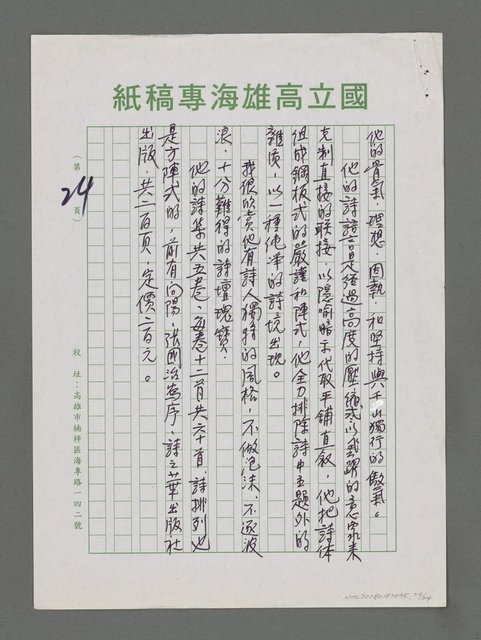 國立高雄海專稿紙
他的骨氣、理想、固執、和堅持與千山獨行的傲氣。
他的詩語言是經過高度的壓縮或以飛躍的意象來
克制直接的联接，以隱喻暗示代取平舖直叙，他把詩体
組成鋼板式的嚴謹和陣式，他全力排除詩中主題外的
雜质，以一種純淨的詩境出現。
我很欣賞他有詩人獨特的風格，不做泡沫、不逐波
浪，十分難得的詩壇瑰寶。
他的詩集共五卷，每卷十二首共六十首，詩排列也
是方陣式的，前有向陽、張國治為序，詩之華出版社
出版，共二百頁，定價二百元。
（第24頁）
校址：高雄市楠梓區海專路一四二號